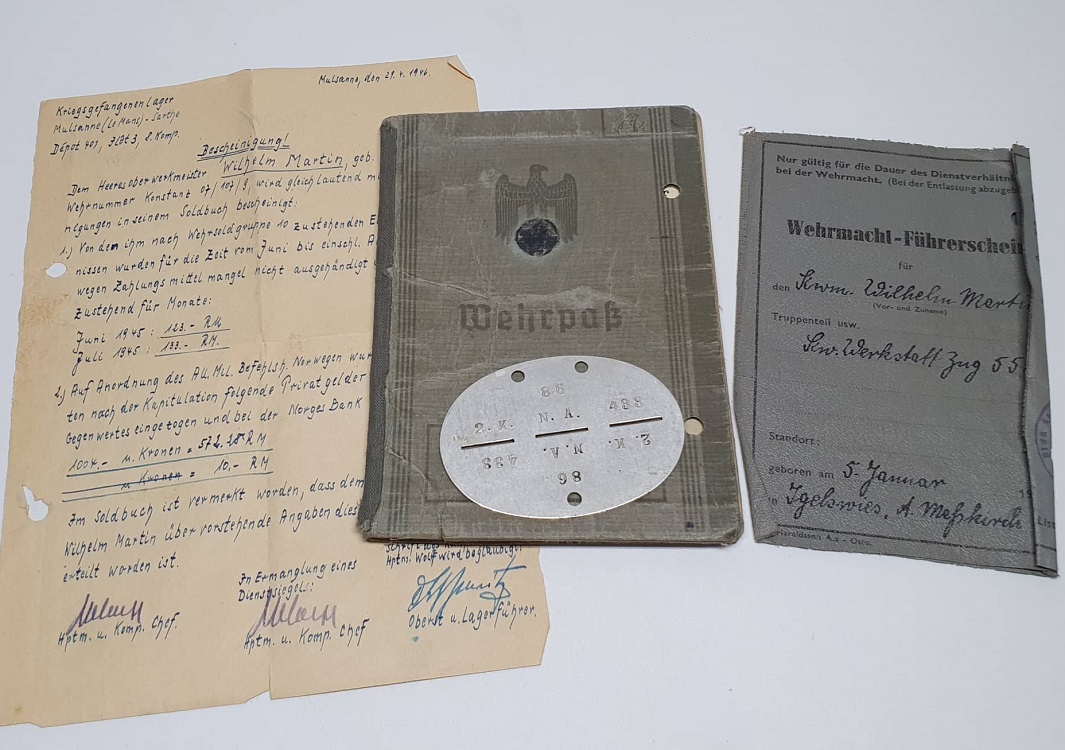 Mulsanne, den 29.4.1946.
Kriegsgefangenenlager
Mulsanne (Le Mans) - Sarthe
Dépot 401, 3. Komp.
Bescheinigung!
Dem Heeresoberwerkmeister Wilhelm Martin, geb.
Wehrnummer Konstanz 07/107/8, wird gleichlautend mi
nigungen in seinem Soldbuch bescheinigt:
1.) Von den ihm nach Wehrsoldgruppe 10 zustehenden E
nissen wurden für die Zeit vom Juni bis einschl. A
wegen Zahlungsmittelmangel nicht ausgehändigt
zustehend für Monate:
Juni 1945 : 123.- RM
Juli 1945 : 133.- RM.
2.) Auf Anordnung des All. Mil. Befehlsh. Norwegen wur
ten nach der Kapitulation folgende Privatgelder
Gegenwertes eingezogen und bei der Norges Bank
1004.- n. Kronen = 572.28 RM
n. Kronen = 10.- RM
Im Soldbuch ist vermerkt worden, dass dem
Wilhelm Martin über vorstehende Angaben dies
erteilt worden ist.
Hptm. u. Komp. Chef.
In Ermanglung eines
Dienstsiegels:
Hptm. u. Komp. Chef
Hptm. Wolf wird beglaubigt
Oberst u. Lagerführer.
Wehrpaß
86
2. K. N. A. 433
433 N.A. 2. K.
86
Nur gültig für die Dauer des Dienstverhältn
bei der Wehrmacht. (Bei der Entlassung abzuge
Wehrmacht-Führerschein
für
den Kwm. Wilhelm Marti
(Vor- und Zuname)
Truppenteil usw.
Kw. Werkstatt Zug 55
Standort:
geboren am 5. Januar 19
in Igelswies, A. Meßkirch
A.s - Oslo.